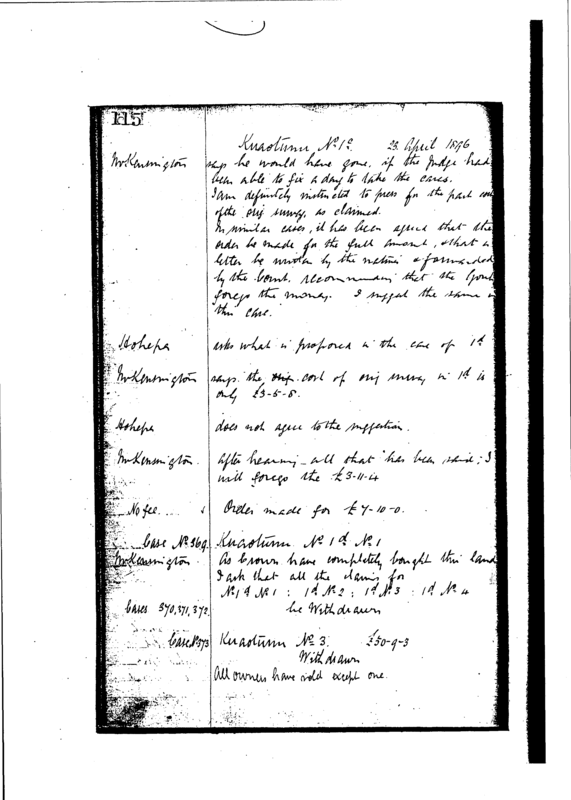 115
Kuaotunu No 1c. 23 April 1896
Mr Kensington says he would have gone, if the Judge had
been able to fix a day to take the cases.
I am definitely instructed to press for the part cost
of the orig survey, as claimed.
In similar cases, it has been agreed that the
order be made for the full amount, & that a
letter be written by the natives & forwarded
by the Court, recommending that the Govt
forego the money. I suggest the same in
this case.
Hohepa asks what is proposed in the case of 1d
Mr Kensington says the orig. cost of orig survey in 1d is
only £3-5-8.
Hohepa does not agree to the suggestion.
Mr Kensington. After hearing all that has been said, I
will forego the £3-11-4
No fee Order made for £7-10-0.
Case No 369 Kuaotunu No 1d No 1
Mr Kensington As Crown have completely bought this land
I ask that all the claims for
No 1d No 1 : 1d No 2 : 1d No 3 : 1d No 4
Cases 370, 371, 372. be Withdrawn
Case No 373 Kuaotunu No 3. £50-9-3
Withdrawn
All owners have sold except one.